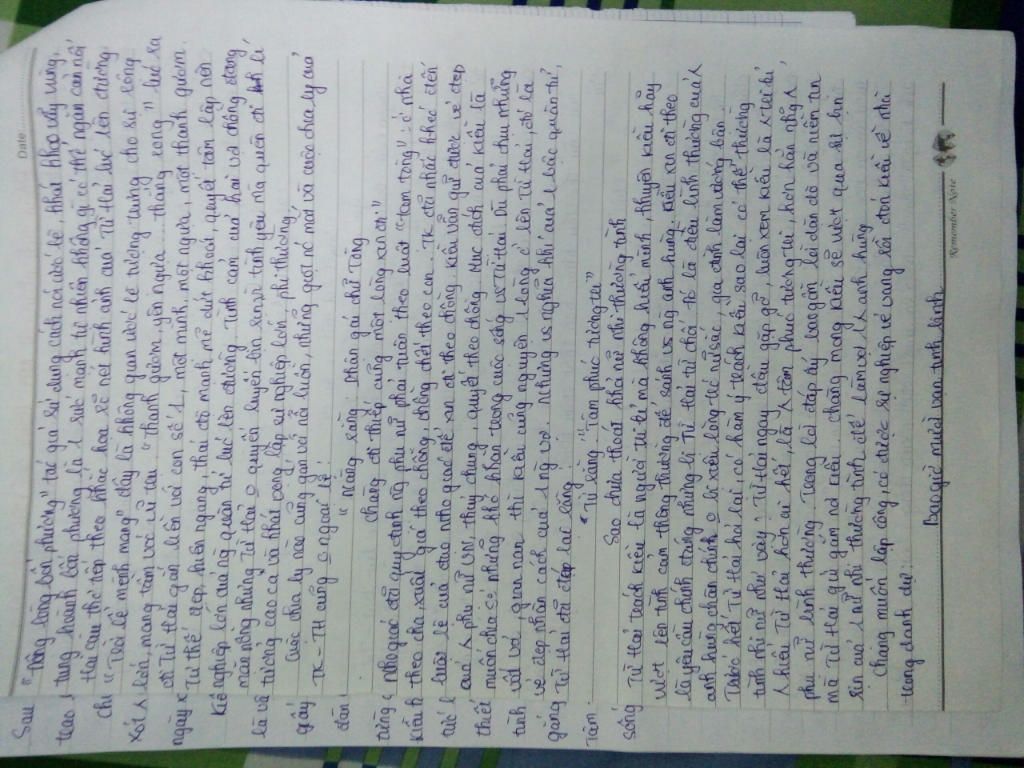 Date
"động lòng bốn phương" tác giả sử dụng cách nói ước lệ, khát khao vẫy vùng,
tung hoành bốn phương là 1 sức mạnh tự nhiên không gì có thể ngăn cản nổi
Tiếp theo khắc họa rõ nét hình ảnh của Từ Hải lúc lên đường
"Trời bể mênh mang" đây là không gian ước lệ tượng trưng cho sự rộng
lớn, mang tầm vóc vũ trụ. "thanh gươm yên ngựa thẳng rong" lúc ra
đi Từ Hải gắn liền với con số 1, một mình, một ngựa, một thanh gươm.
Tư thế đẹp, hiên ngang, thái độ mạnh mẽ dứt khoát, quyết tâm lập nên
nghiệp lớn của ng quân tử lúc lên đường. Tình cảm của hai vợ chồng đang
mặn nồng nhưng Từ Hải o quyến luyến bịn rịn, vì tình yêu mà quên đi lí
tưởng cao cả và khát vọng lập sự nghiệp lớn phi thường,
Cuộc chia ly nào cũng gắn với nỗi buồn, những giọt nước mắt và cuộc chia ly của
TK - TH cũng o ngoại lệ!
"Nàng rằng: Phận gái chữ Tòng
Chàng đi thiếp cũng một lòng xin đi."
Nho giáo đã quy định ng phụ nữ phải tuân theo luật "tam tòng": ở nhà
theo cha, xuất giá theo chồng, chồng chết theo con. TK đã nhắc khéo đến
luật lệ của đạo nho giáo để xin đi theo chồng. Kiều vẫn giữ được vẻ đẹp
của phụ nữ VN, thủy chung, quyết theo chồng. Mục đích của Kiều là
muốn chia sẻ những khó khăn trong cuộc sống vs Từ Hải. Dù phải chịu những
vất vả, gian nan thì Kiều cũng nguyện lòng ở bên Từ Hải, đó là
vẻ đẹp nhân cách của 1 ng vợ. Nhưng vs nghĩa khí của 1 bậc quân tử,
Từ Hải đã đáp lại rằng
"Từ rằng: "Tâm phúc tương tri"
Sao chưa thoát khỏi nữ nhi thường tình
Từ Hải trách Kiều là người tri kỉ mà không hiểu mình, khuyên Kiều hãy
vượt lên tình cảm thông thường để sánh vs ng anh hùng. Kiều xin đi theo
là yêu cầu chính đáng nhưng lí do Từ Hải từ chối đó là điều bình thường của
anh hùng chân chính, o bị xiêu lòng trc nữ sắc, gia đình làm vướng bận
Trước hết Từ Hải hỏi lại, có hàm ý trách Kiều sao lại có thể thường
tình nhi nữ như vậy. Từ Hải ngay đầu gặp gỡ, luôn xem Kiều là tri kỉ
hiểu Từ Hải hơn ai hết, là tâm phúc tương tri, hơn hẳn những
phụ nữ bình thường. Trong lời đáp ấy bao gồm lời dặn dò và niềm tin
mà Từ Hải gửi gắm nơi Kiều. Chàng mong Kiều sẽ vượt qua sự bịn
rịn của 1 nữ nhi thường tình để làm vợ 1 anh hùng
Chàng muốn lập công, có được sự nghiệp vẻ vang rồi đón Kiều về nhà
trong danh dự:
Bao giờ mười vạn tinh binh
Remember Note
Sau
trao
Chi
Xót
ngày x
Kiề
là và
giấy
đàn
tiếng
Kiều
tức
thiết
tình
gàng
Tâm
sống